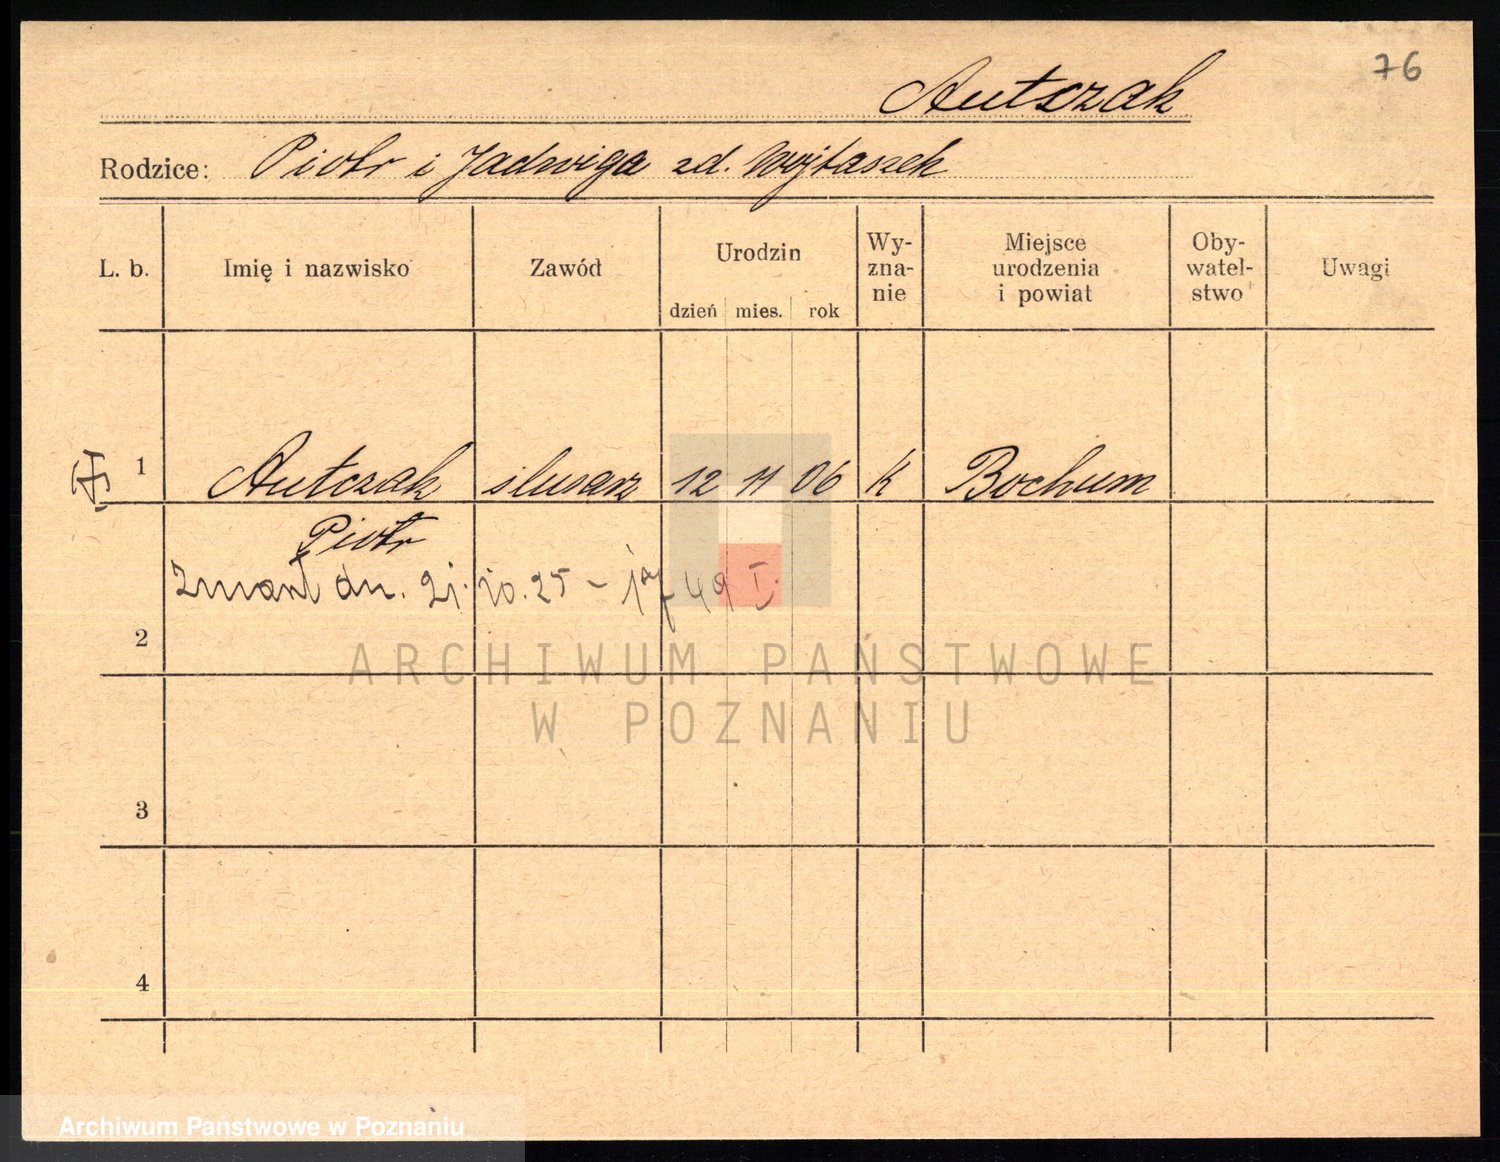 76
Antczak
Rodzice: Piotr i Jadwiga zd. Wojtaszek
L. b. Imię i nazwisko Zawód Urodzin dzień mies. rok Wy-zna-nie Miejsce urodzenia i powiat Oby-watel-stwo Uwagi
1 Antczak ślusarz 12 11 06 k Bochum
Piotr
Zmarł dn. 21. 10. 25 –
2
ARCHIWUM PAŃSTWOWE
W POZNANIU
3
4
Archiwum Państwowe w Poznaniu